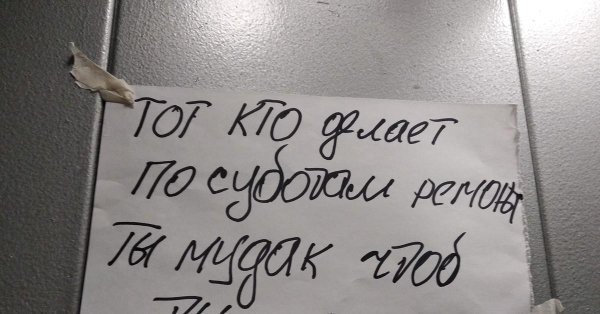 ТОТ КТО делает
по суботам ремонт
Ты мудак чтоб
ты